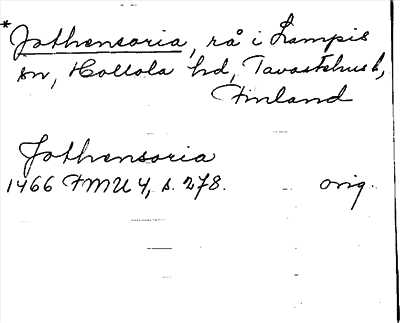 * Jothensoria, rå i Lampis
sn, Hollola hd, Tavastehus l,
Finland
Jothensoria
1466 FMU 4, s. 278. orig.